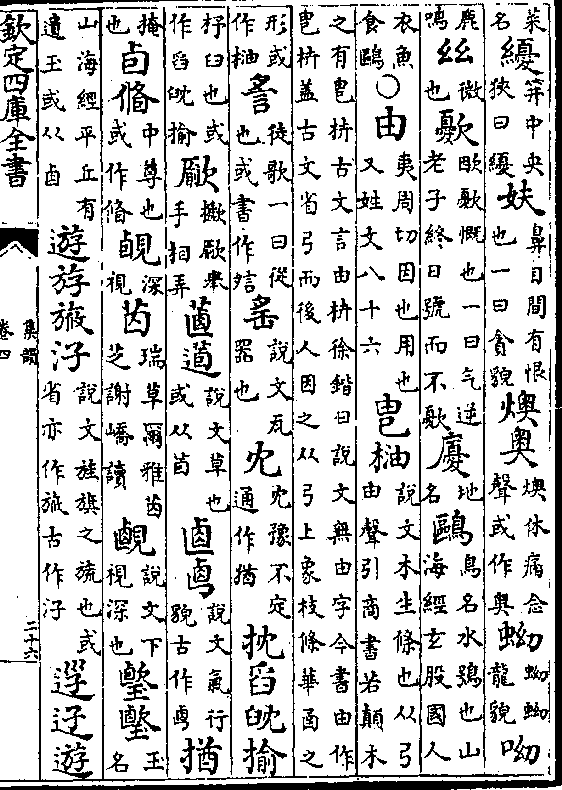 菜名纋笄中央狹曰纋妋鼻目間有恨也一曰貪貌燠奧燠休痛念聲或作奧蚴蚴蟉龍貌呦
鹿鳴也𢆶微也歎慨也一曰气逆老子終日號而不地名鷗鳥名水鴞也山海經玄股國人
衣魚食鷗○由夷周切因也用也又姓文八十六㽕柚說文木生條也从弓由聲引商書若顛木
之有㽕枿古文言由枿徐鍇曰說文無由字今書由作㽕枿蓋古文省弓而後人因之从弓上象枝條華函之
形或作柚䚻徒歌一曰從也或書作䚻䍃說文瓦器也冘冘豫不定通作猶抌舀䑔揄
抒臼也或作舀䑔揄舉手相弄說文草也或从䔾說文氣行貌古作猶
掩也卣脩中尊也或作脩深視苬瑞草爾雅苬芝謝嶠讀說文下視深也玉名
山海經平丘有遺玉或从卣遊斿汓說文旌旗之旒也或省亦作古作汓遊
欽定四庫全書
集韻
卷四
二十六